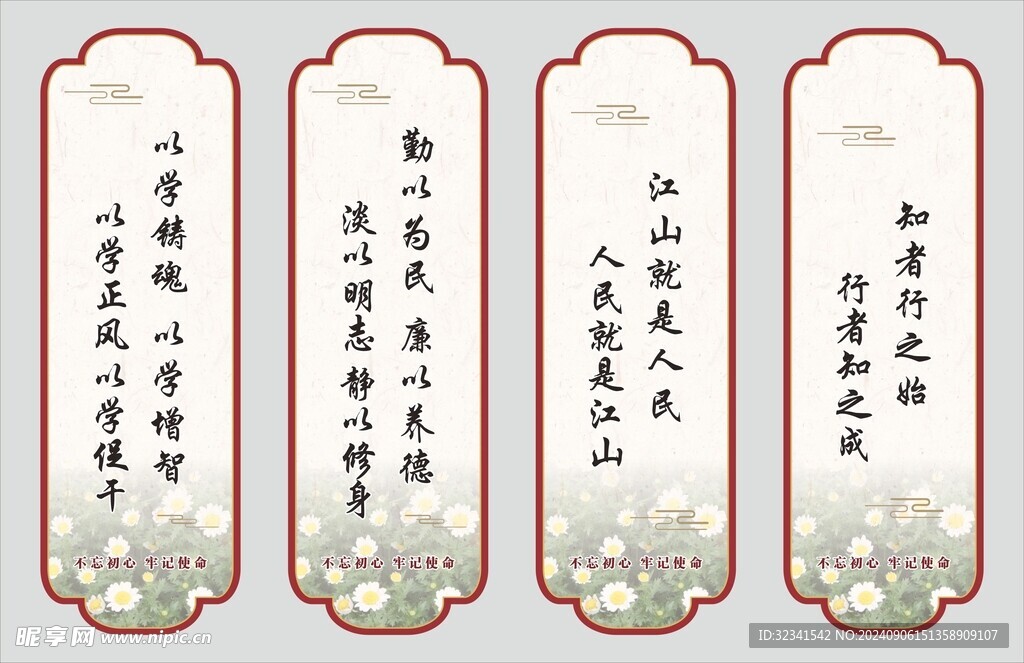 以学铸魂 以学增智
以学正风 以学促干
不忘初心 牢记使命
勤以为民 廉以养德
淡以明志 静以修身
不忘初心 牢记使命
江山就是人民
人民就是江山
不忘初心 牢记使命
知者行之始
行者知之成
不忘初心 牢记使命
昵享网 www.nipic.cn
ID:32341542 NO:20240906151358909107